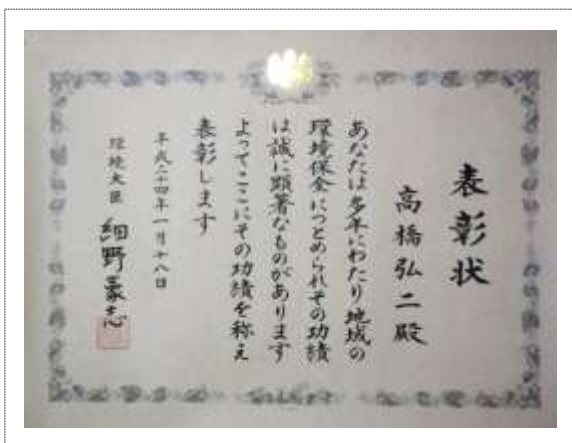 表彰状
高橋弘二殿
あなたは多年にわたり地域の
環境保全につとめられその功績
は誠に顕著なものがあります
よってここにその功績を称え
表彰します
平成二十四年一月十八日
環境大臣 細野豪志